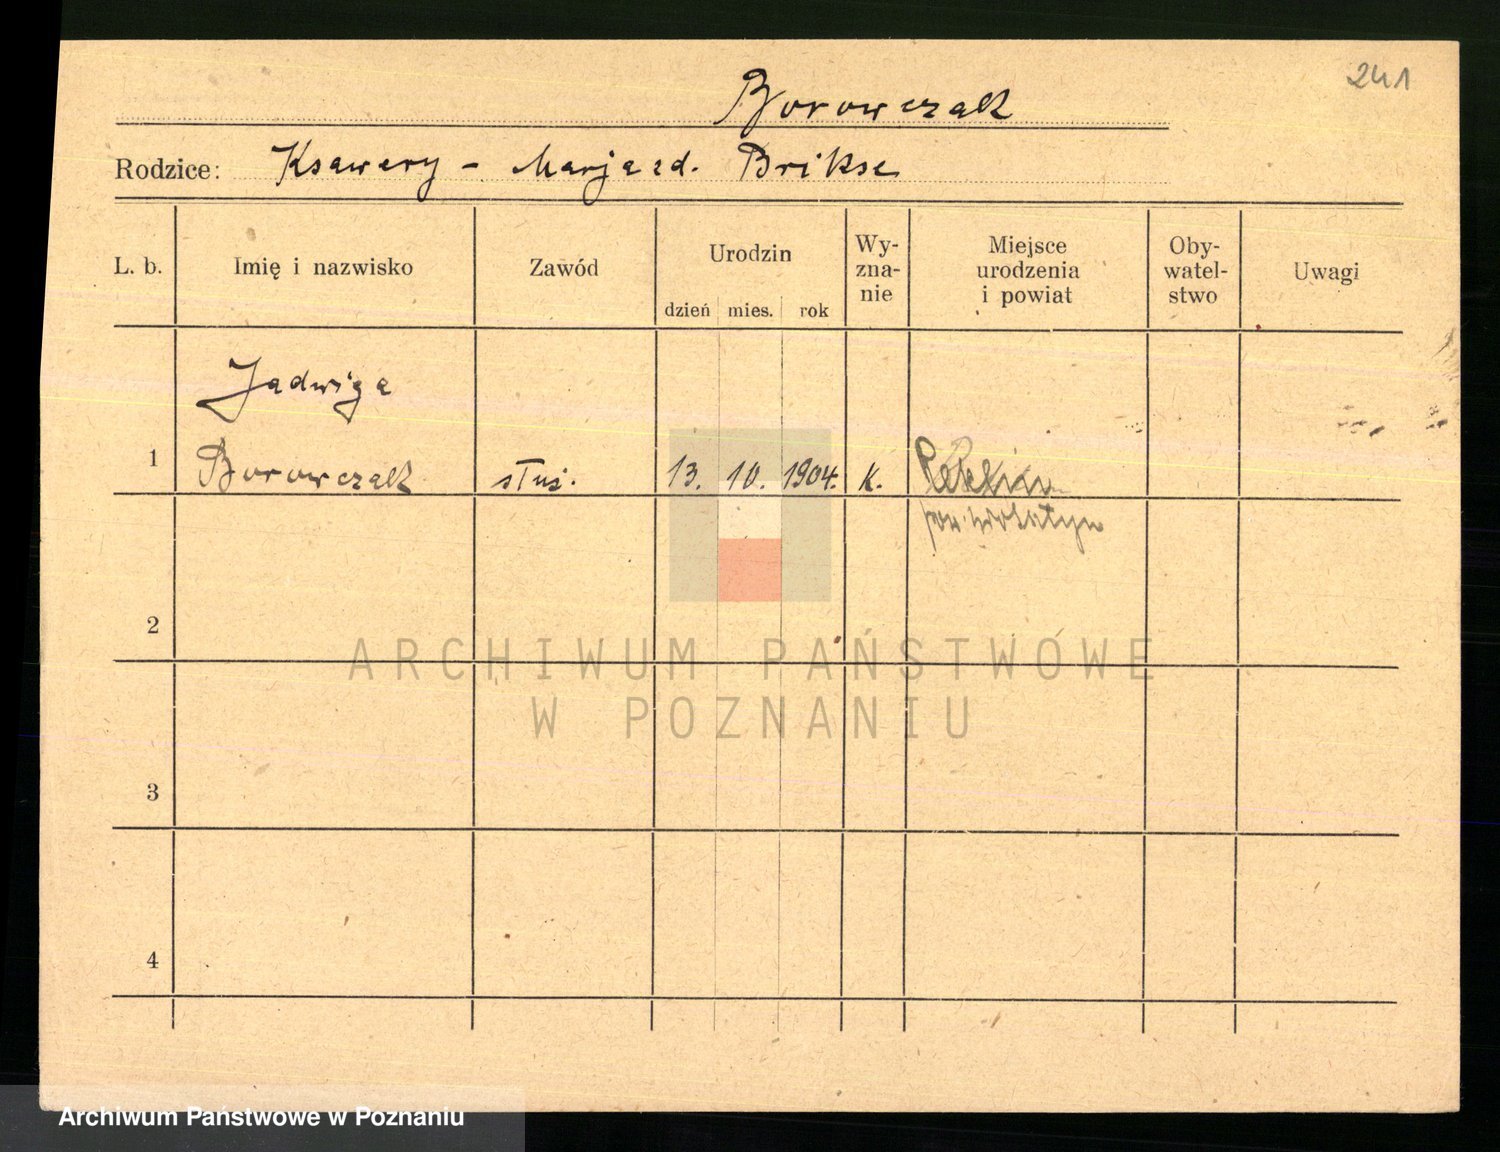 241
Borowczak
Rodzice: Ksawery - Marja zd. Brikse
L. b.
Imię i nazwisko
Zawód
Urodzin
dzień mies. rok
Wy-
zna-
nie
Miejsce
urodzenia
i powiat
Oby-
watel-
stwo
Uwagi
Jadwiga
1 Borowczak służ. 13. 10. 1904. k.
pow.
2
3
4
ARCHIWUM PAŃSTWOWE
W POZNANIU
Archiwum Państwowe w Poznaniu